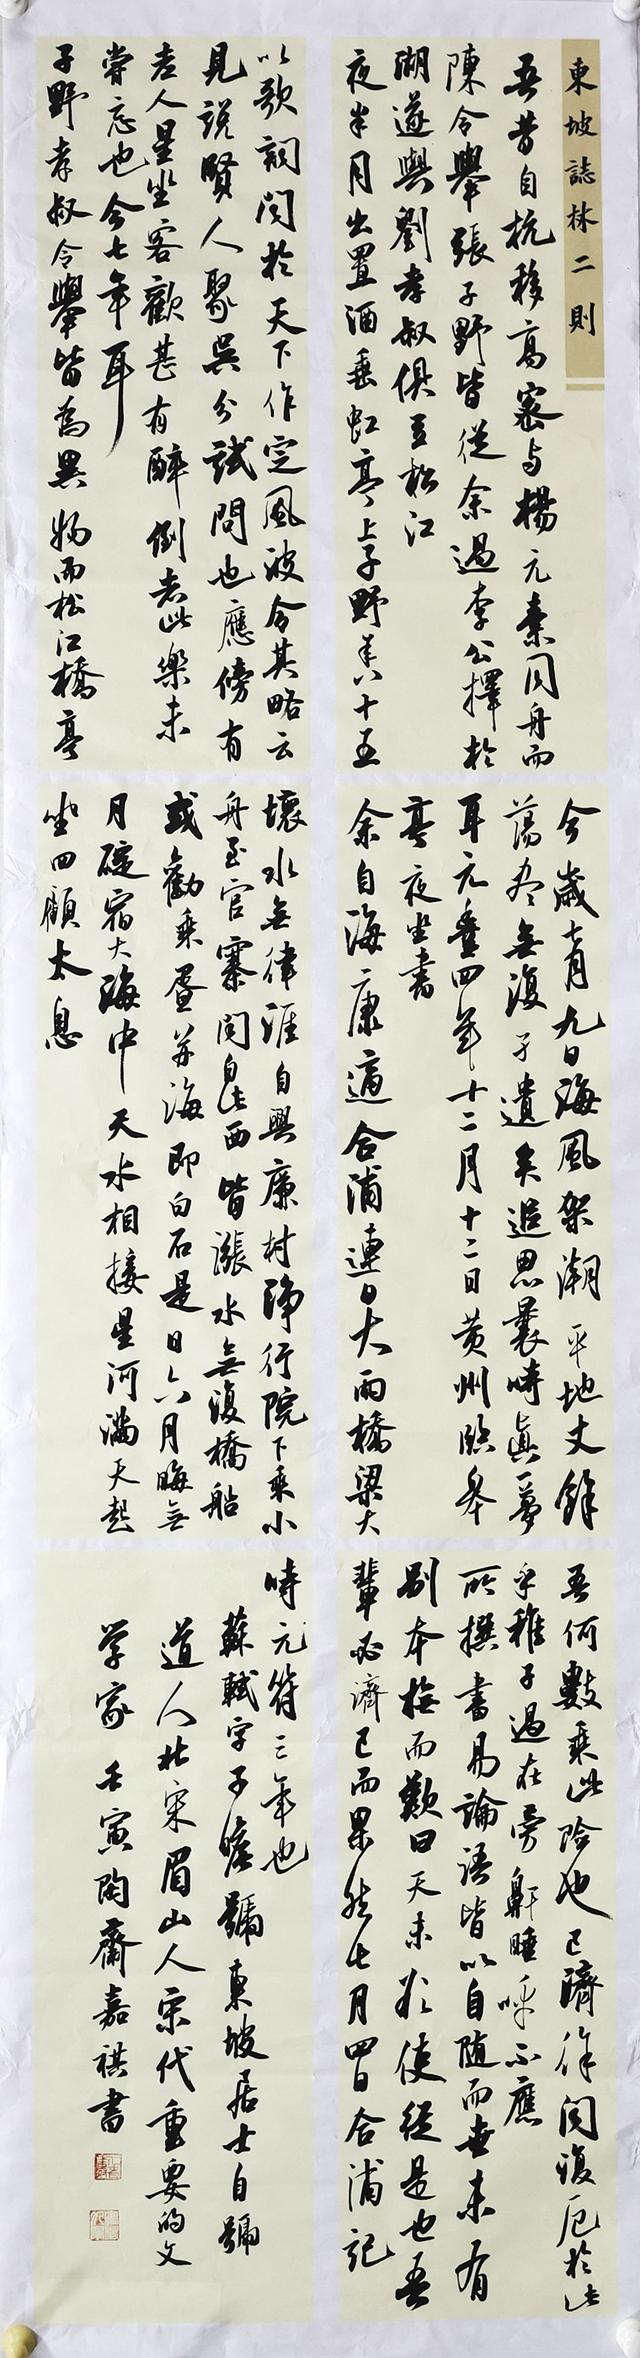 東坡誌林二則
吾昔自杭移高密与楊元素同舟而
陳令舉張子野皆從余過李公擇於
湖遂與劉孝叔俱至松江
夜半月出置酒垂虹亭上子野年八十五
以歌詞聞於天下作定風波令其略云
見說賢人聚吳分試問也應傍有
老人星坐客歡甚有醉倒者此樂未
嘗忘也今七年耳
子野孝叔令舉皆為異物而松江橋亭
今歲七月九日海風架潮平地丈餘
蕩尽無復孑遺矣追思曩時真一夢
耳元豐四年十二月十二日黃州臨皋
亭夜坐書
余自海康適合浦連日大雨橋梁大
壞水無津涯自興廉村淨行院下乘小
舟至官寨聞自此西皆漲水無復橋船
或勸乘蜑並海即白石是日六月晦無
月碇宿大海中天水相接星河滿天起
坐四顧太息
吾何數乘此險也已濟徐聞復厄於此
乎稚子過在旁鼾睡呼不應
所撰書易論語皆以自隨而世未有
別本撫而歎曰天未欲使從是也吾
輩必濟已而果然七月四日合浦記
時元符三年也
蘇軾字子瞻號東坡居士自號
道人北宋眉山人宋代重要的文
学家 壬寅陶齋嘉祺書